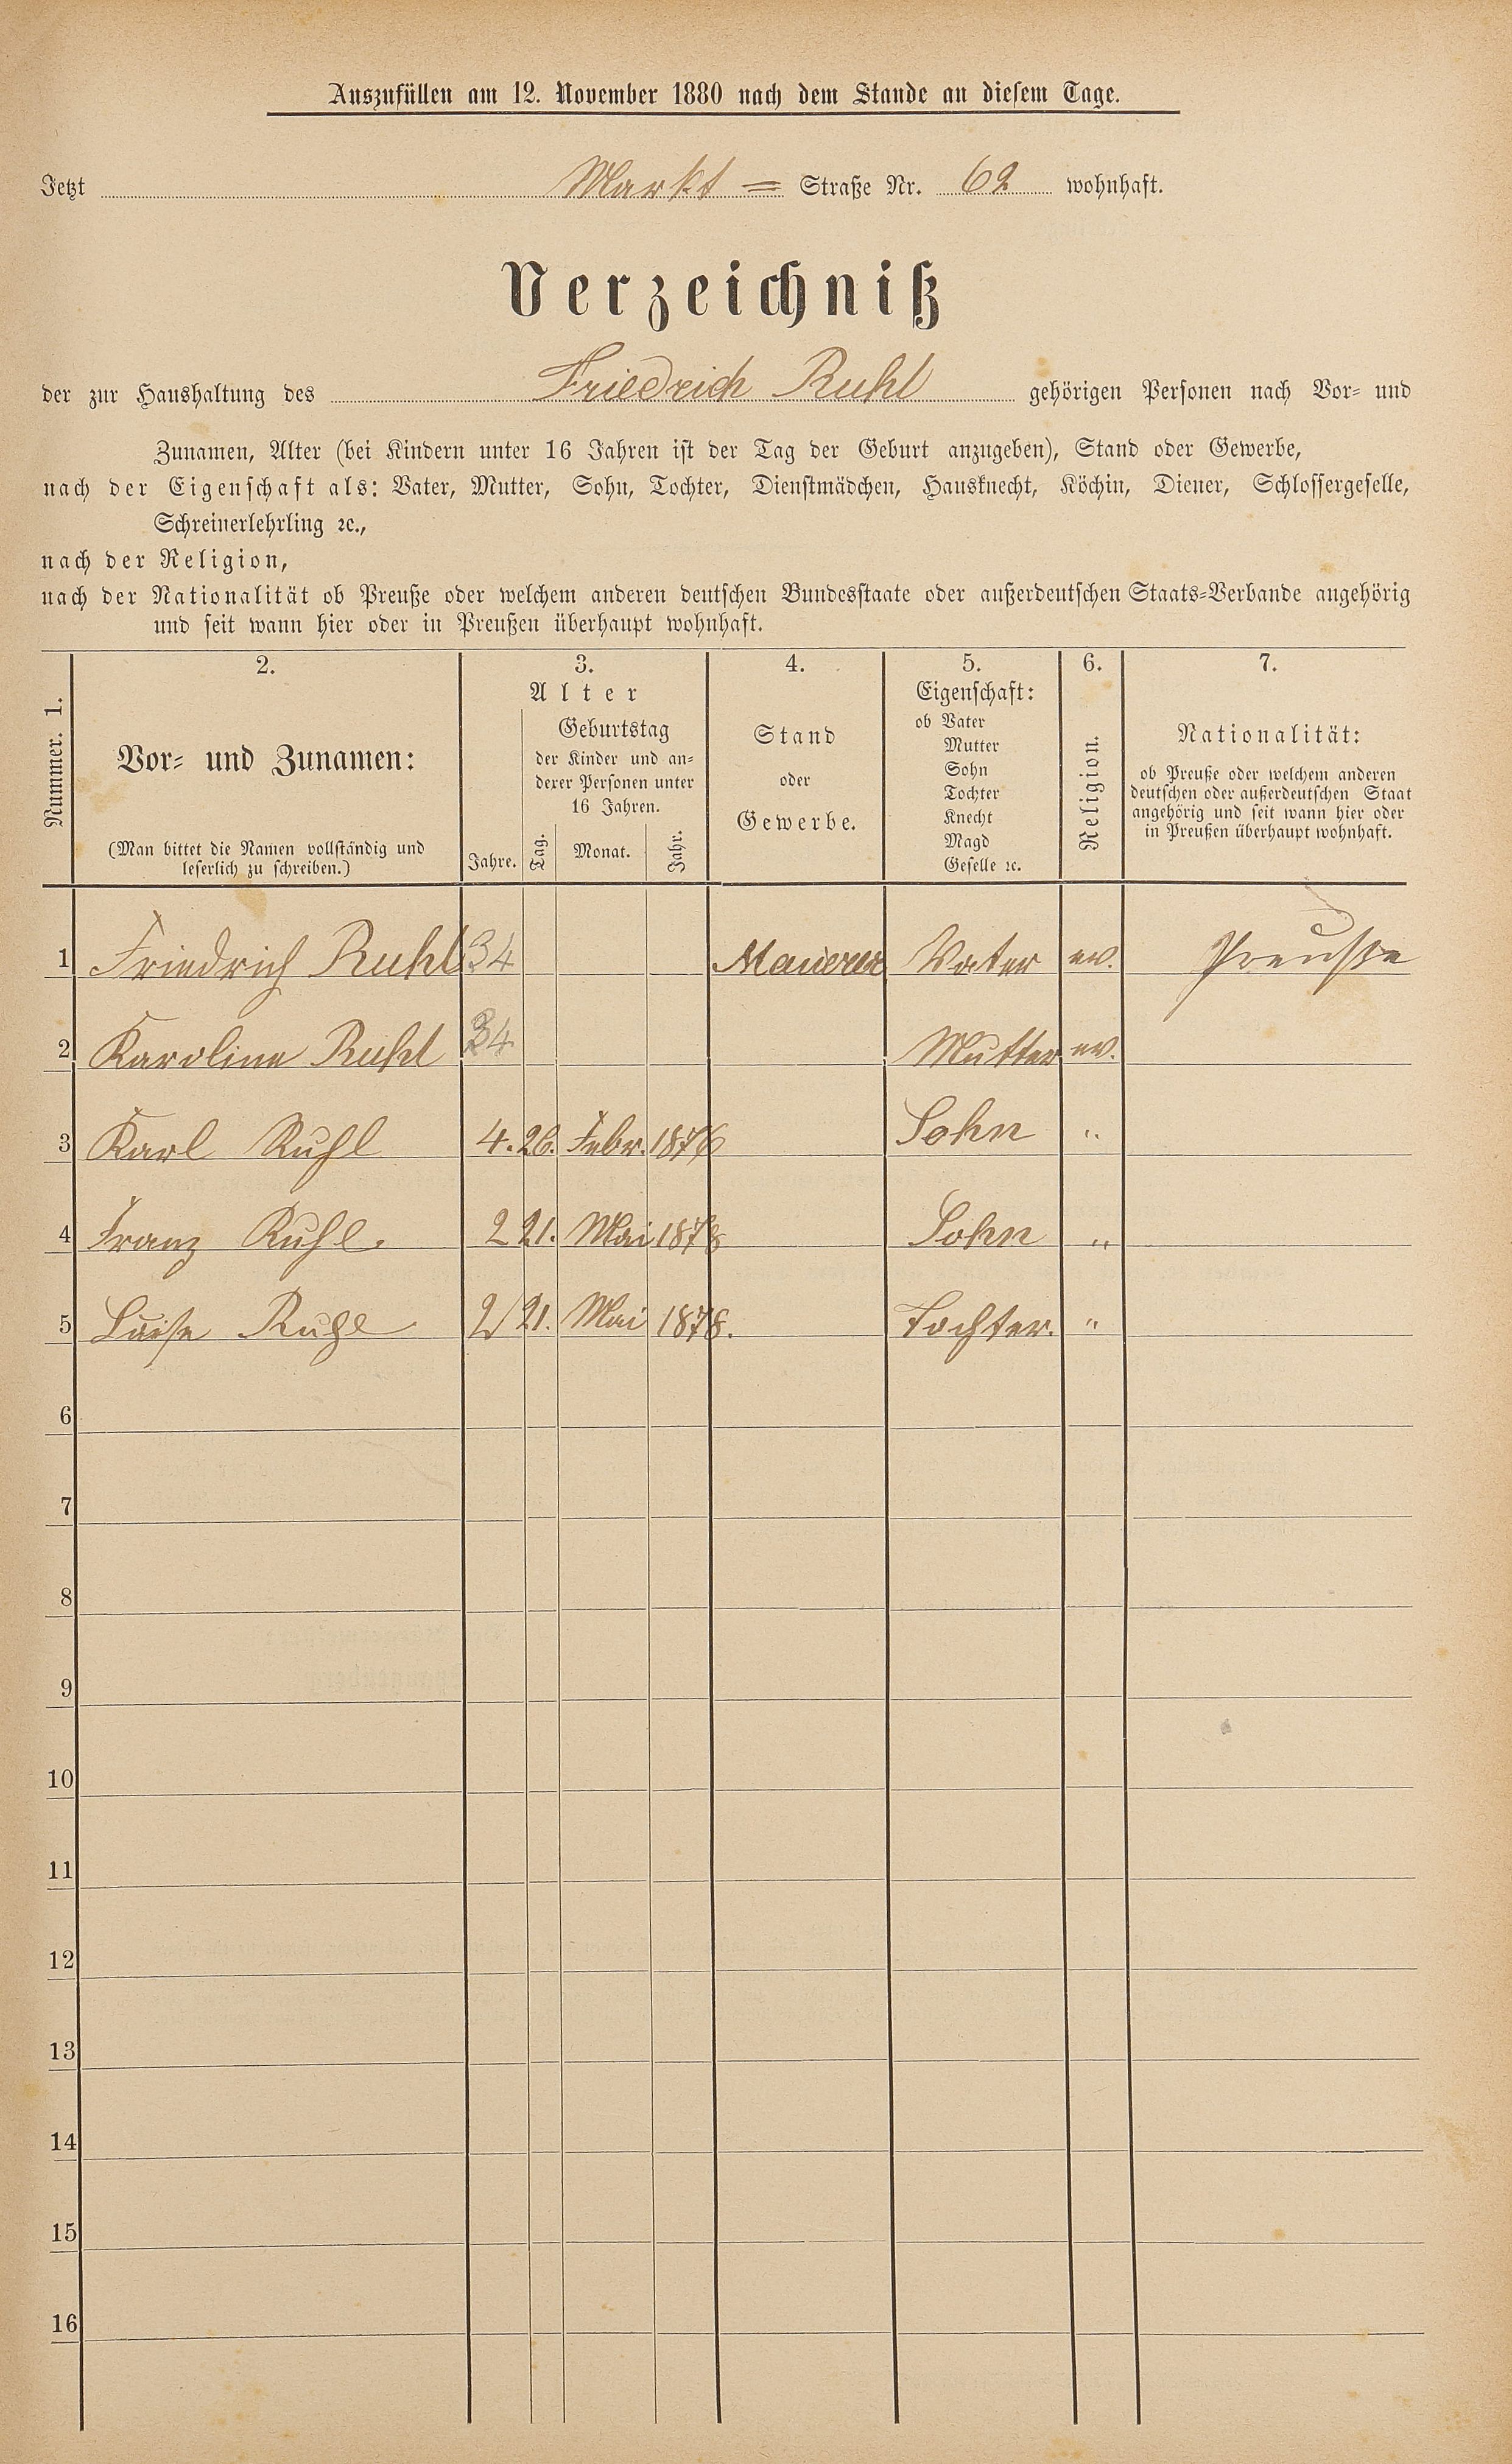 Auszufüllen am 12. November 1880 nach dem Stande an diesem Tage.
Jetzt Markt = Straße Nr. 62 wohnhaft.
Verzeichniß
der zur Haushaltung des Friedrich Ruhl gehörigen Personen nach Vor- und
Zunamen, Alter (bei Kindern unter 16 Jahren ist der Tag der Geburt anzugeben), Stand oder Gewerbe,
nach der Eigenschaft als: Vater, Mutter, Sohn, Tochter, Dienstmädchen, Hausknecht, Köchin, Diener, Schlossergeselle,
Schreinerlehrling ꝛc.,
nach der Religion,
nach der Nationalität ob Preuße oder welchem anderen deutschen Bundesstaate oder außerdeutschen Staats-Verbande angehörig
und seit wann hier oder in Preußen überhaupt wohnhaft.
Nummer. 1.
2.
Vor- und Zunamen:
(Man bittet die Namen vollständig und
leserlich zu schreiben.)
3.
Alter
Jahre.
Geburtstag
der Kinder und an-
derer Personen unter
16 Jahren.
Tag. Monat. Jahr.
4.
Stand
oder
Gewerbe.
5.
Eigenschaft:
ob Vater
Mutter
Sohn
Tochter
Knecht
Magd
Geselle ꝛc.
6.
Religion.
7.
Nationalität:
ob Preuße oder welchem anderen
deutschen oder außerdeutschen Staat
angehörig und seit wann hier oder
in Preußen überhaupt wohnhaft.
1 Friedrich Ruhl 34 Mauerer Vater ev. Preuße
2 Karoline Ruhl 34 Mutter ev.
3 Karl Ruhl 4. 26. Febr. 1876 Sohn "
4 Franz Ruhl. 2 21. Mai 1878 Sohn "
5 Luise Ruhl 2 21. Mai 1878. Tochter. "
6
7
8
9
10
11
12
13
14
15
16